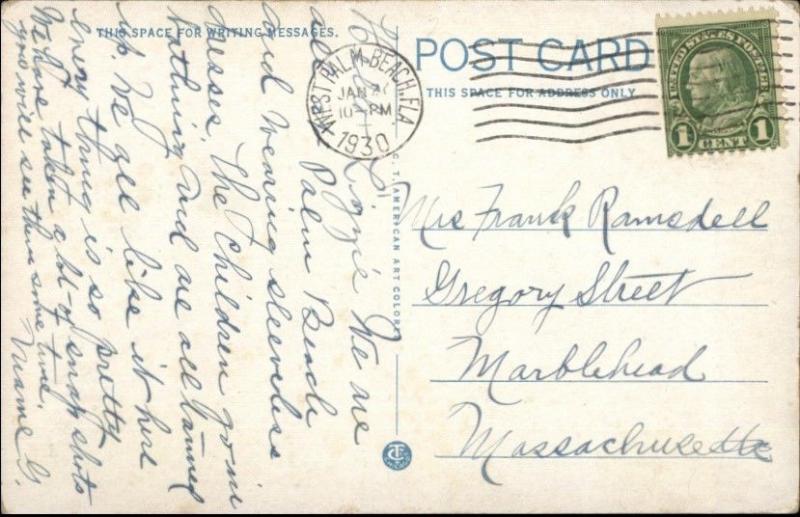 THIS SPACE FOR WRITING MESSAGES.
POST CARD
THIS SPACE FOR ADDRESS ONLY
UNITED STATES POSTAGE
1 CENT 1
WEST PALM BEACH, FLA
JAN
10 PM
1930
C. T. AMERICAN ART COLORED
Hello Lizzie We are
all Palm Beach
and wearing sleeveless
dresses. The children go in
bathing and are all tanned
up. We all like it here
every thing is so pretty
We have taken a lot of snap shots
you will see them some time.
G.
Mrs Frank Ramsdell
Gregory Street
Marblehead
Massachusetts